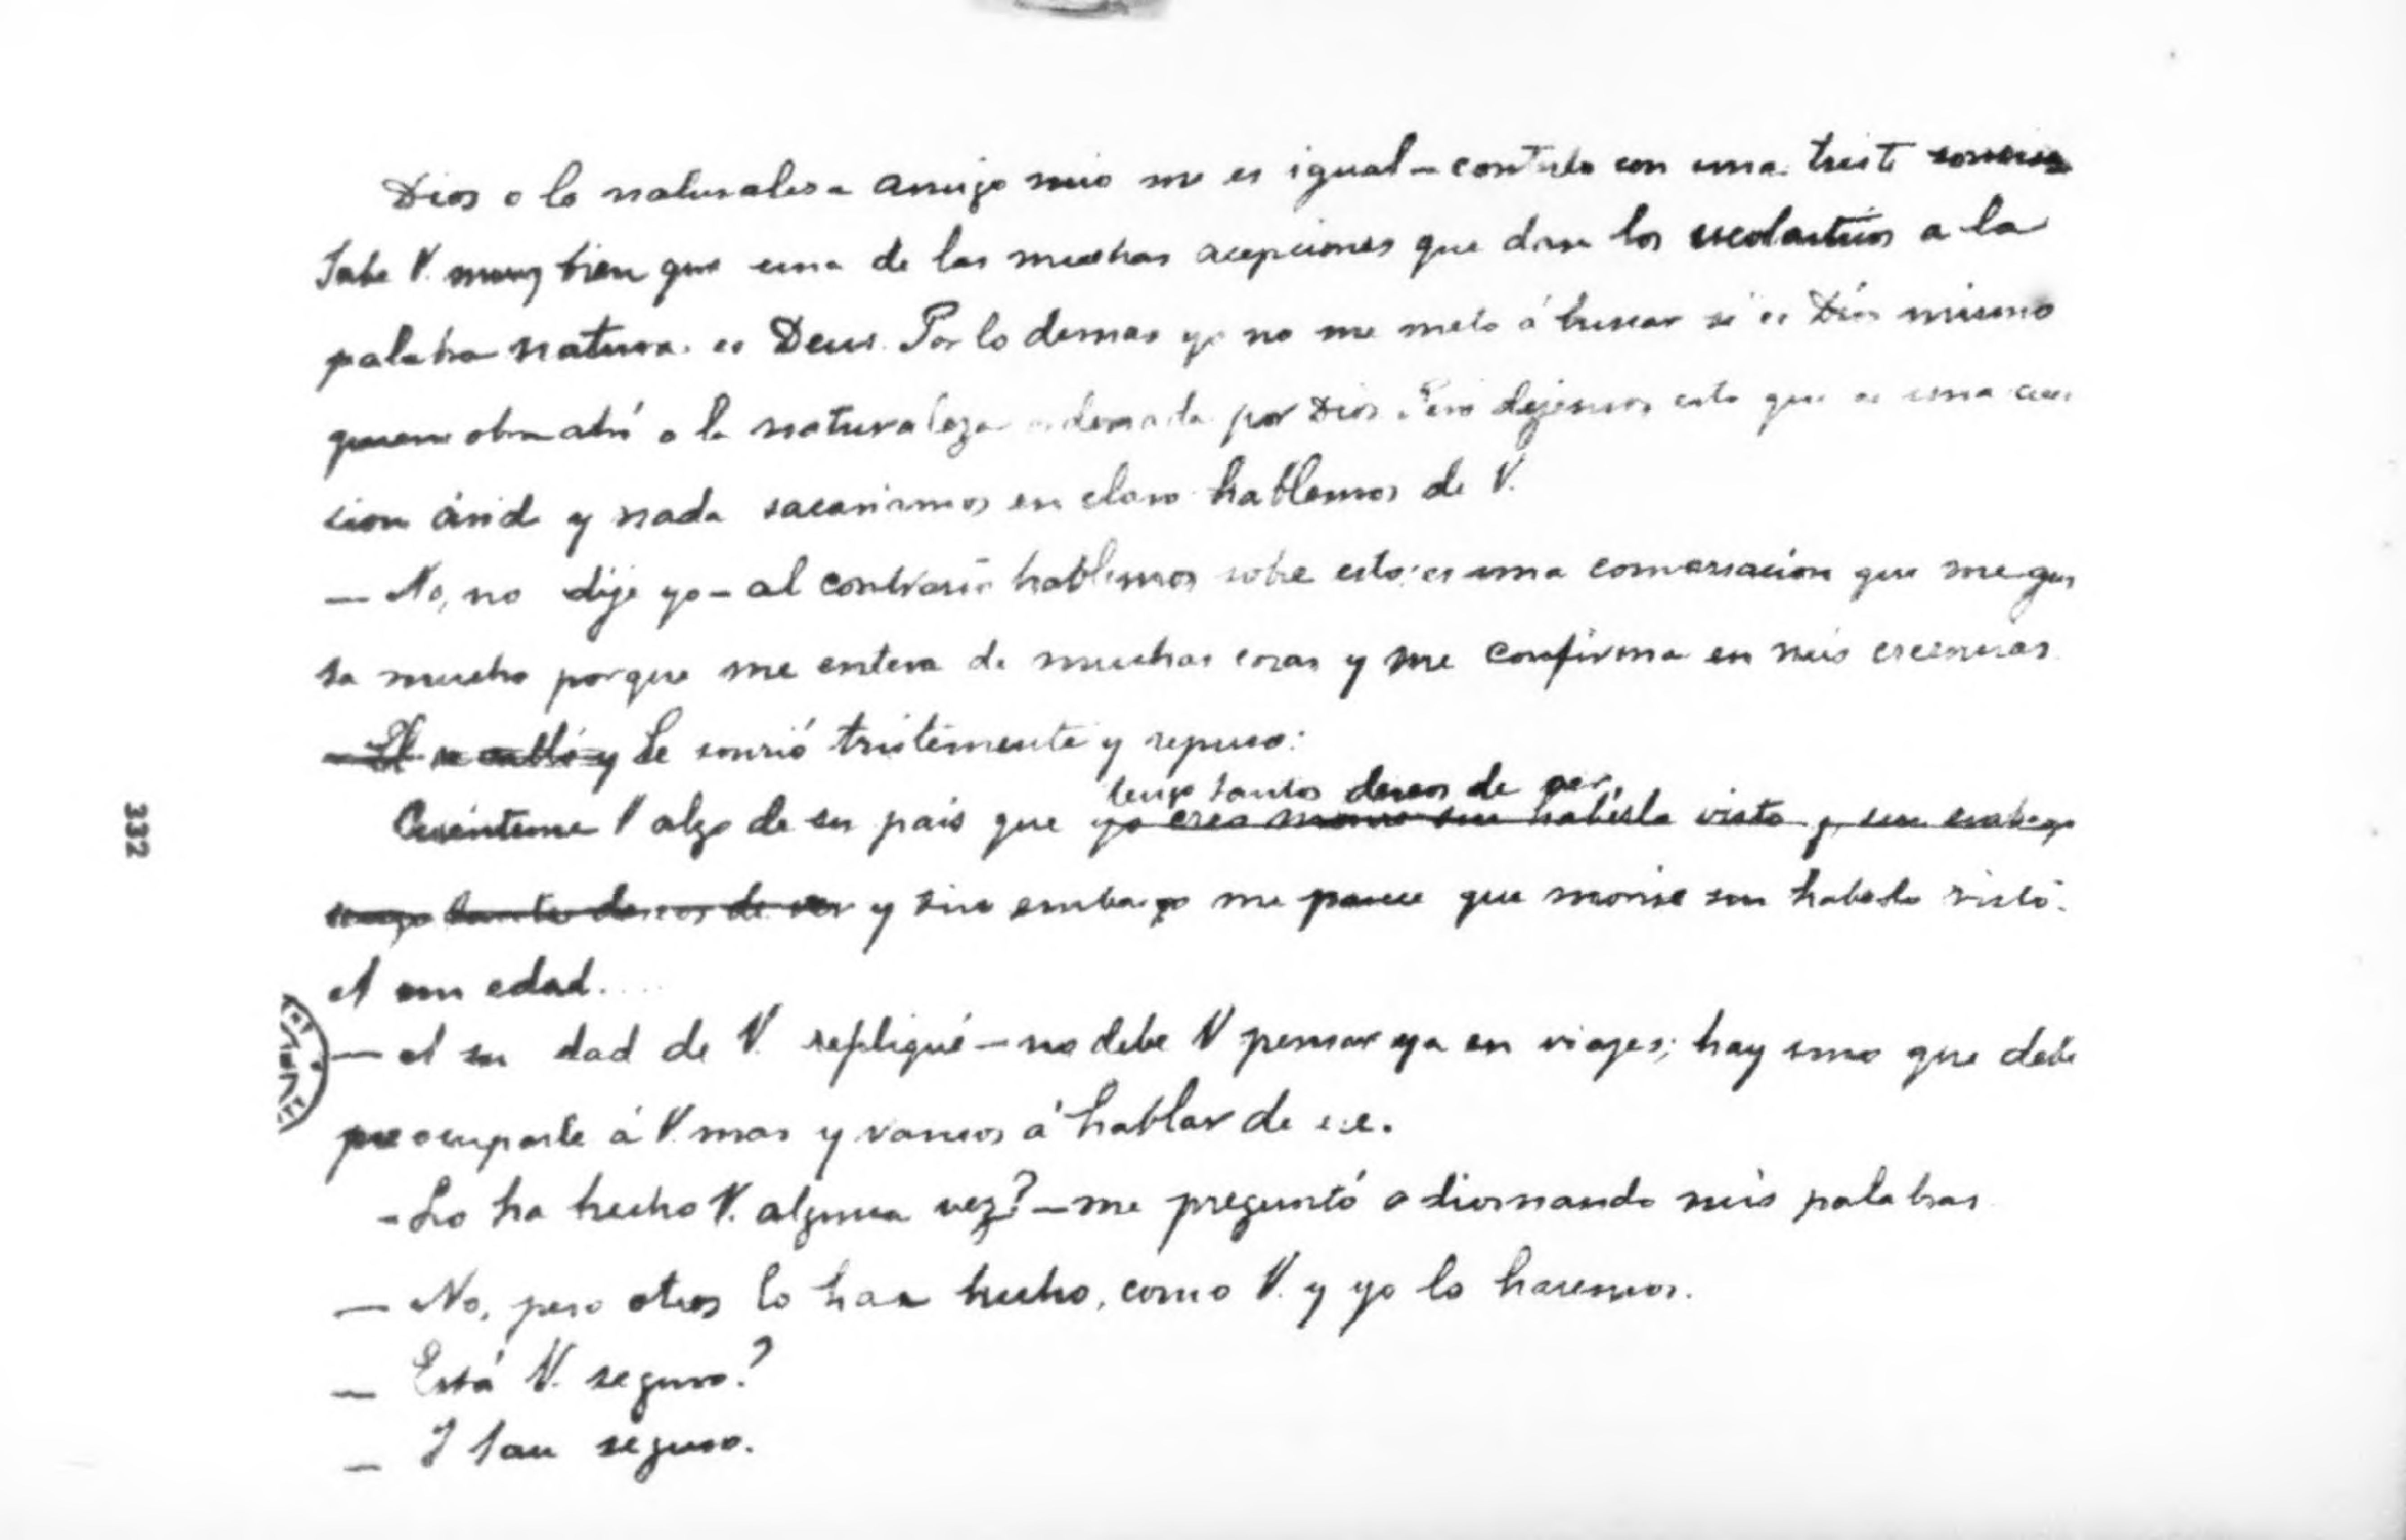 Dios o la naturaleza amigo mio me es igual – contesto con una triste sonrisa
Sabe V. muy bien que una de las muchas acepciones que dan los escolasticos a la
palabra natura es Deus. Por lo demas yo no me meto á buscar si es Dios mismo
quien obra ahí o la naturaleza ordenada por Dios. Pero dejemos esto que es una cues
cion árida y nada sacariamos en claro hablemos de V.
— No, no dije yo – al contrario hablemos sobre esto: es una conversacion que me gus
ta mucho porque me entera de muchas cosas y me confirma en mis creencias
— El se calló y Se sonrió tristemente y repuso:
tengo tantos deseos de ver,
Cuénteme V algo de su pais que yo creo morir sin haberla visto y sin embargo
tengo tantos deseos de ver y sin embargo me parece que moriré sin haberlo visto.
A mi edad....
— A su edad de V. repliqué – no debe V pensar ya en viajes; hay uno que debe
preocuparle á V. mas y vamos á hablar de ese.
- Lo ha hecho V. alguna vez? – me preguntó adivinando mis palabras
— No, pero otros lo han hecho, como V. y yo lo haremos.
— Está V. seguro?
— Y tan seguro.
332